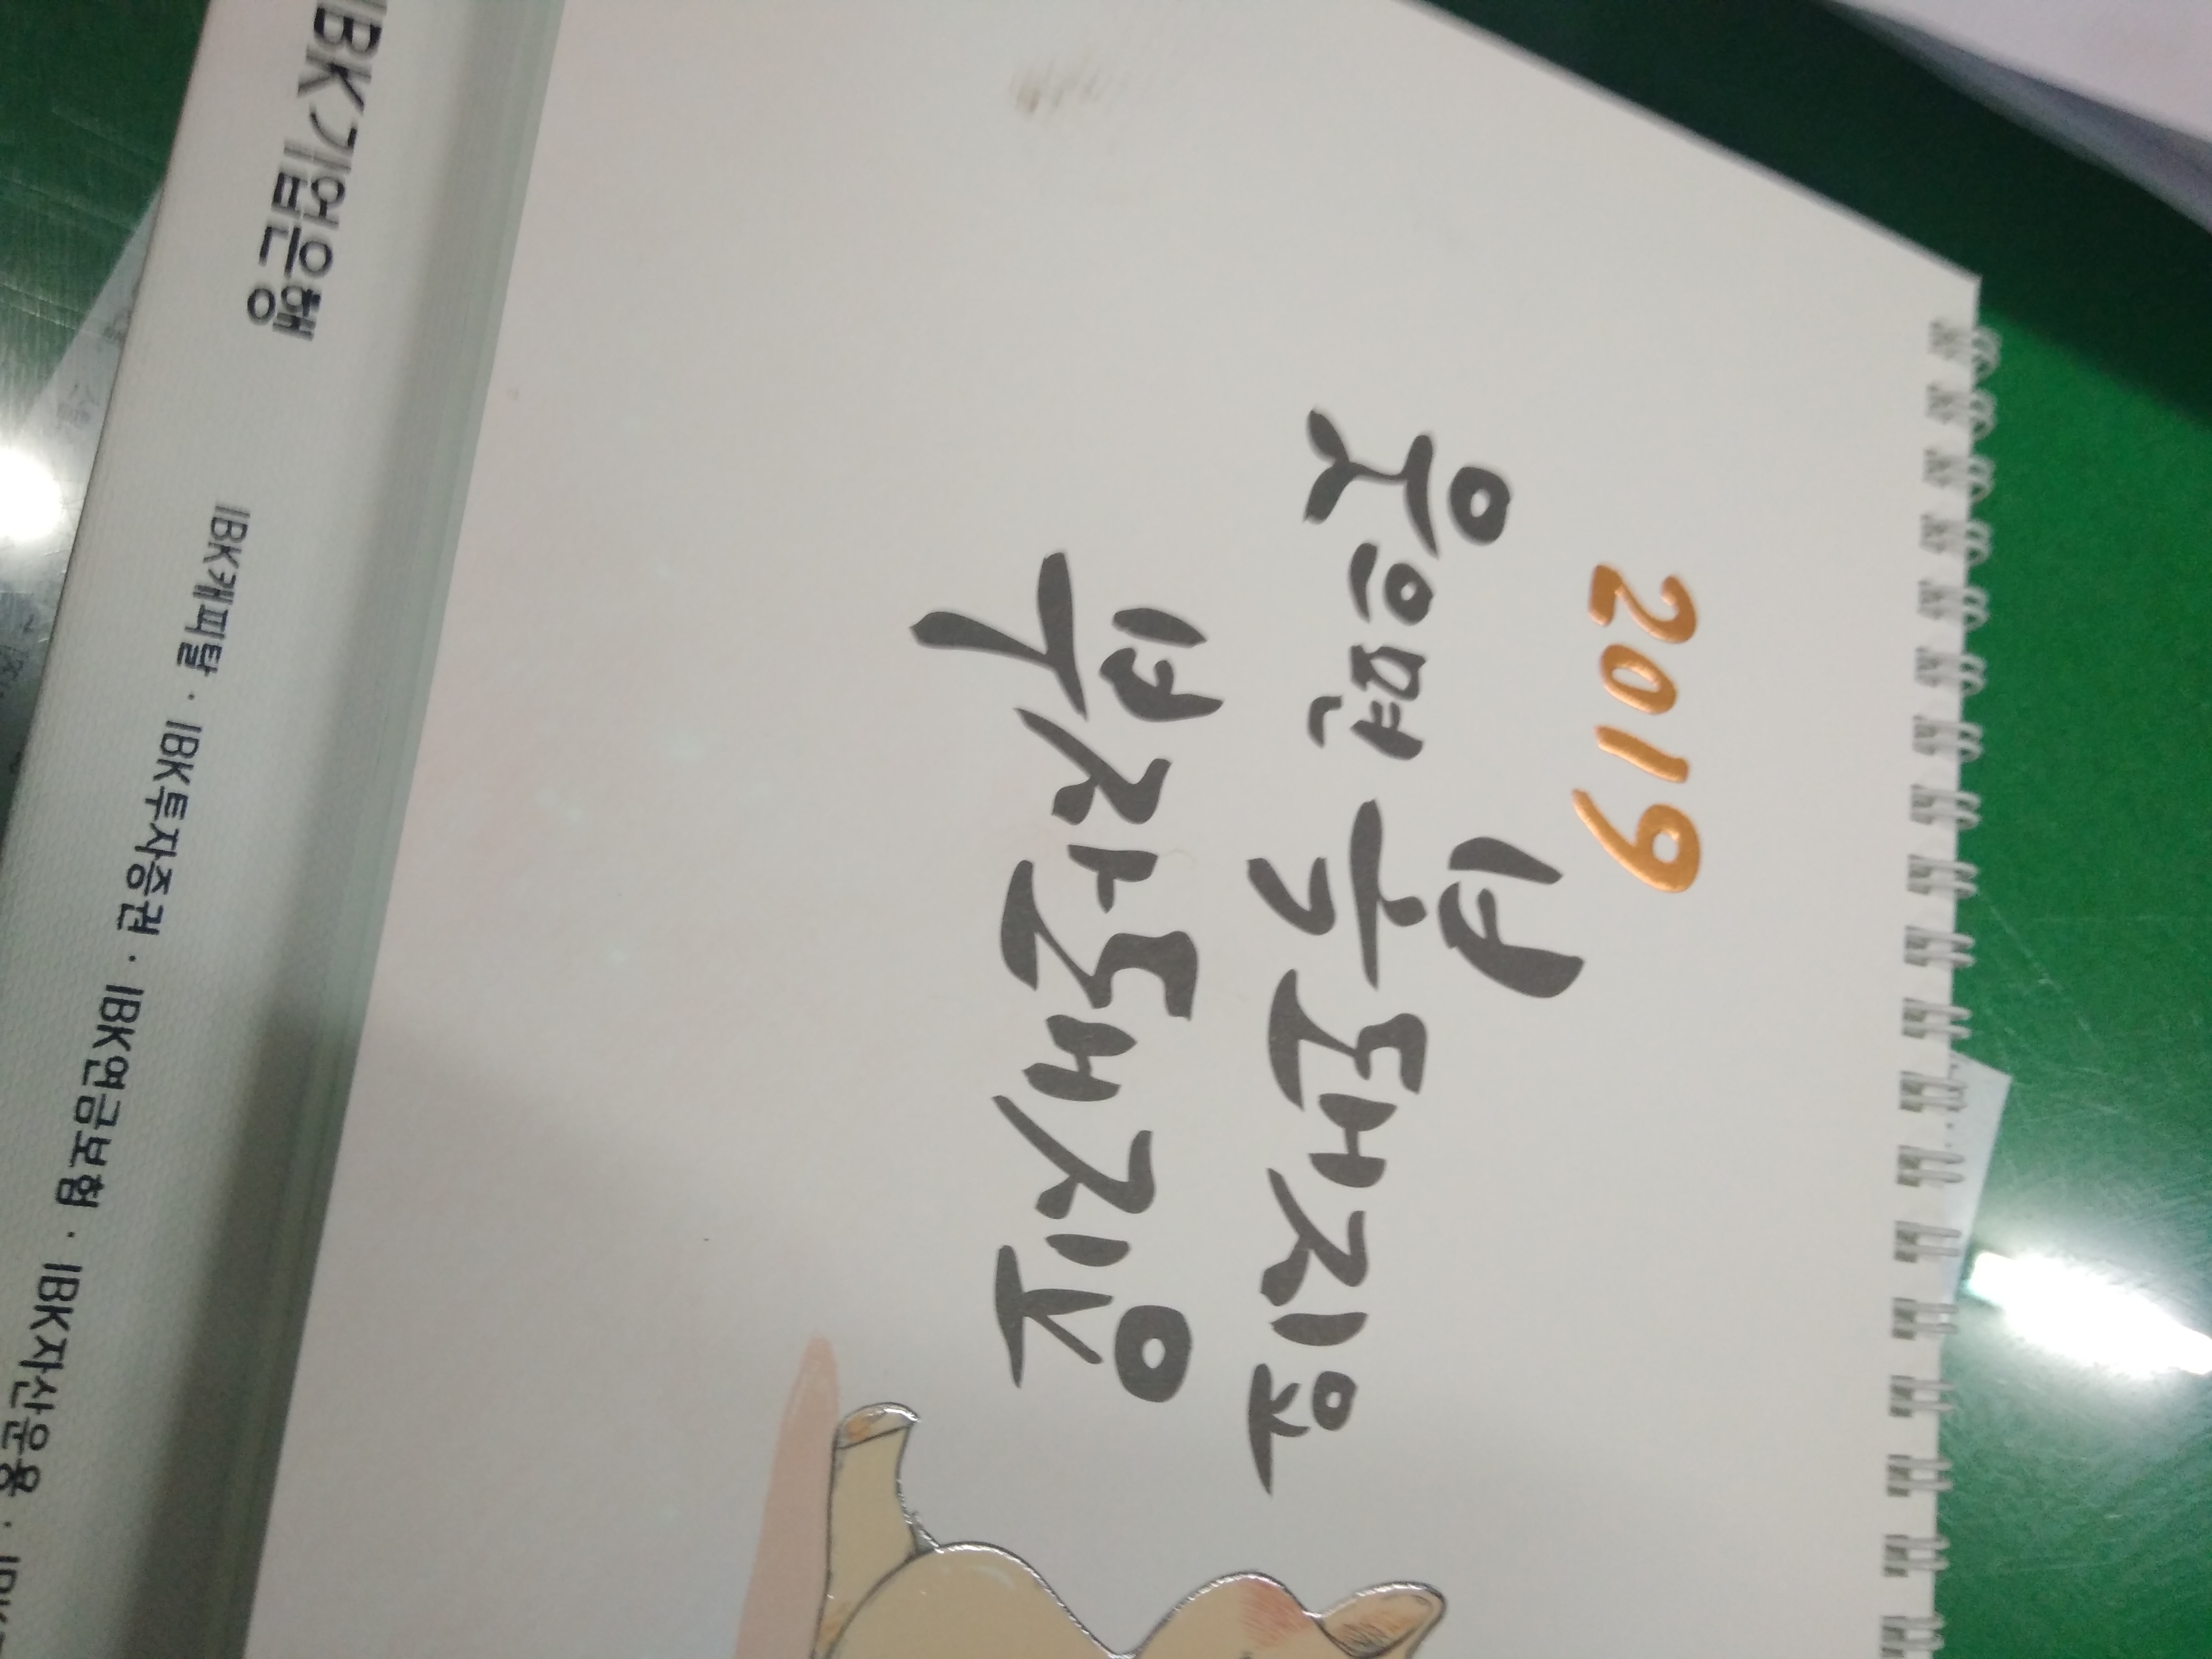 2019
웃으면 복돼지요
부자돼지요
IBK기업은행 IBK캐피탈 · IBK투자증권 · IBK연금보험 · IBK자산운용 ·